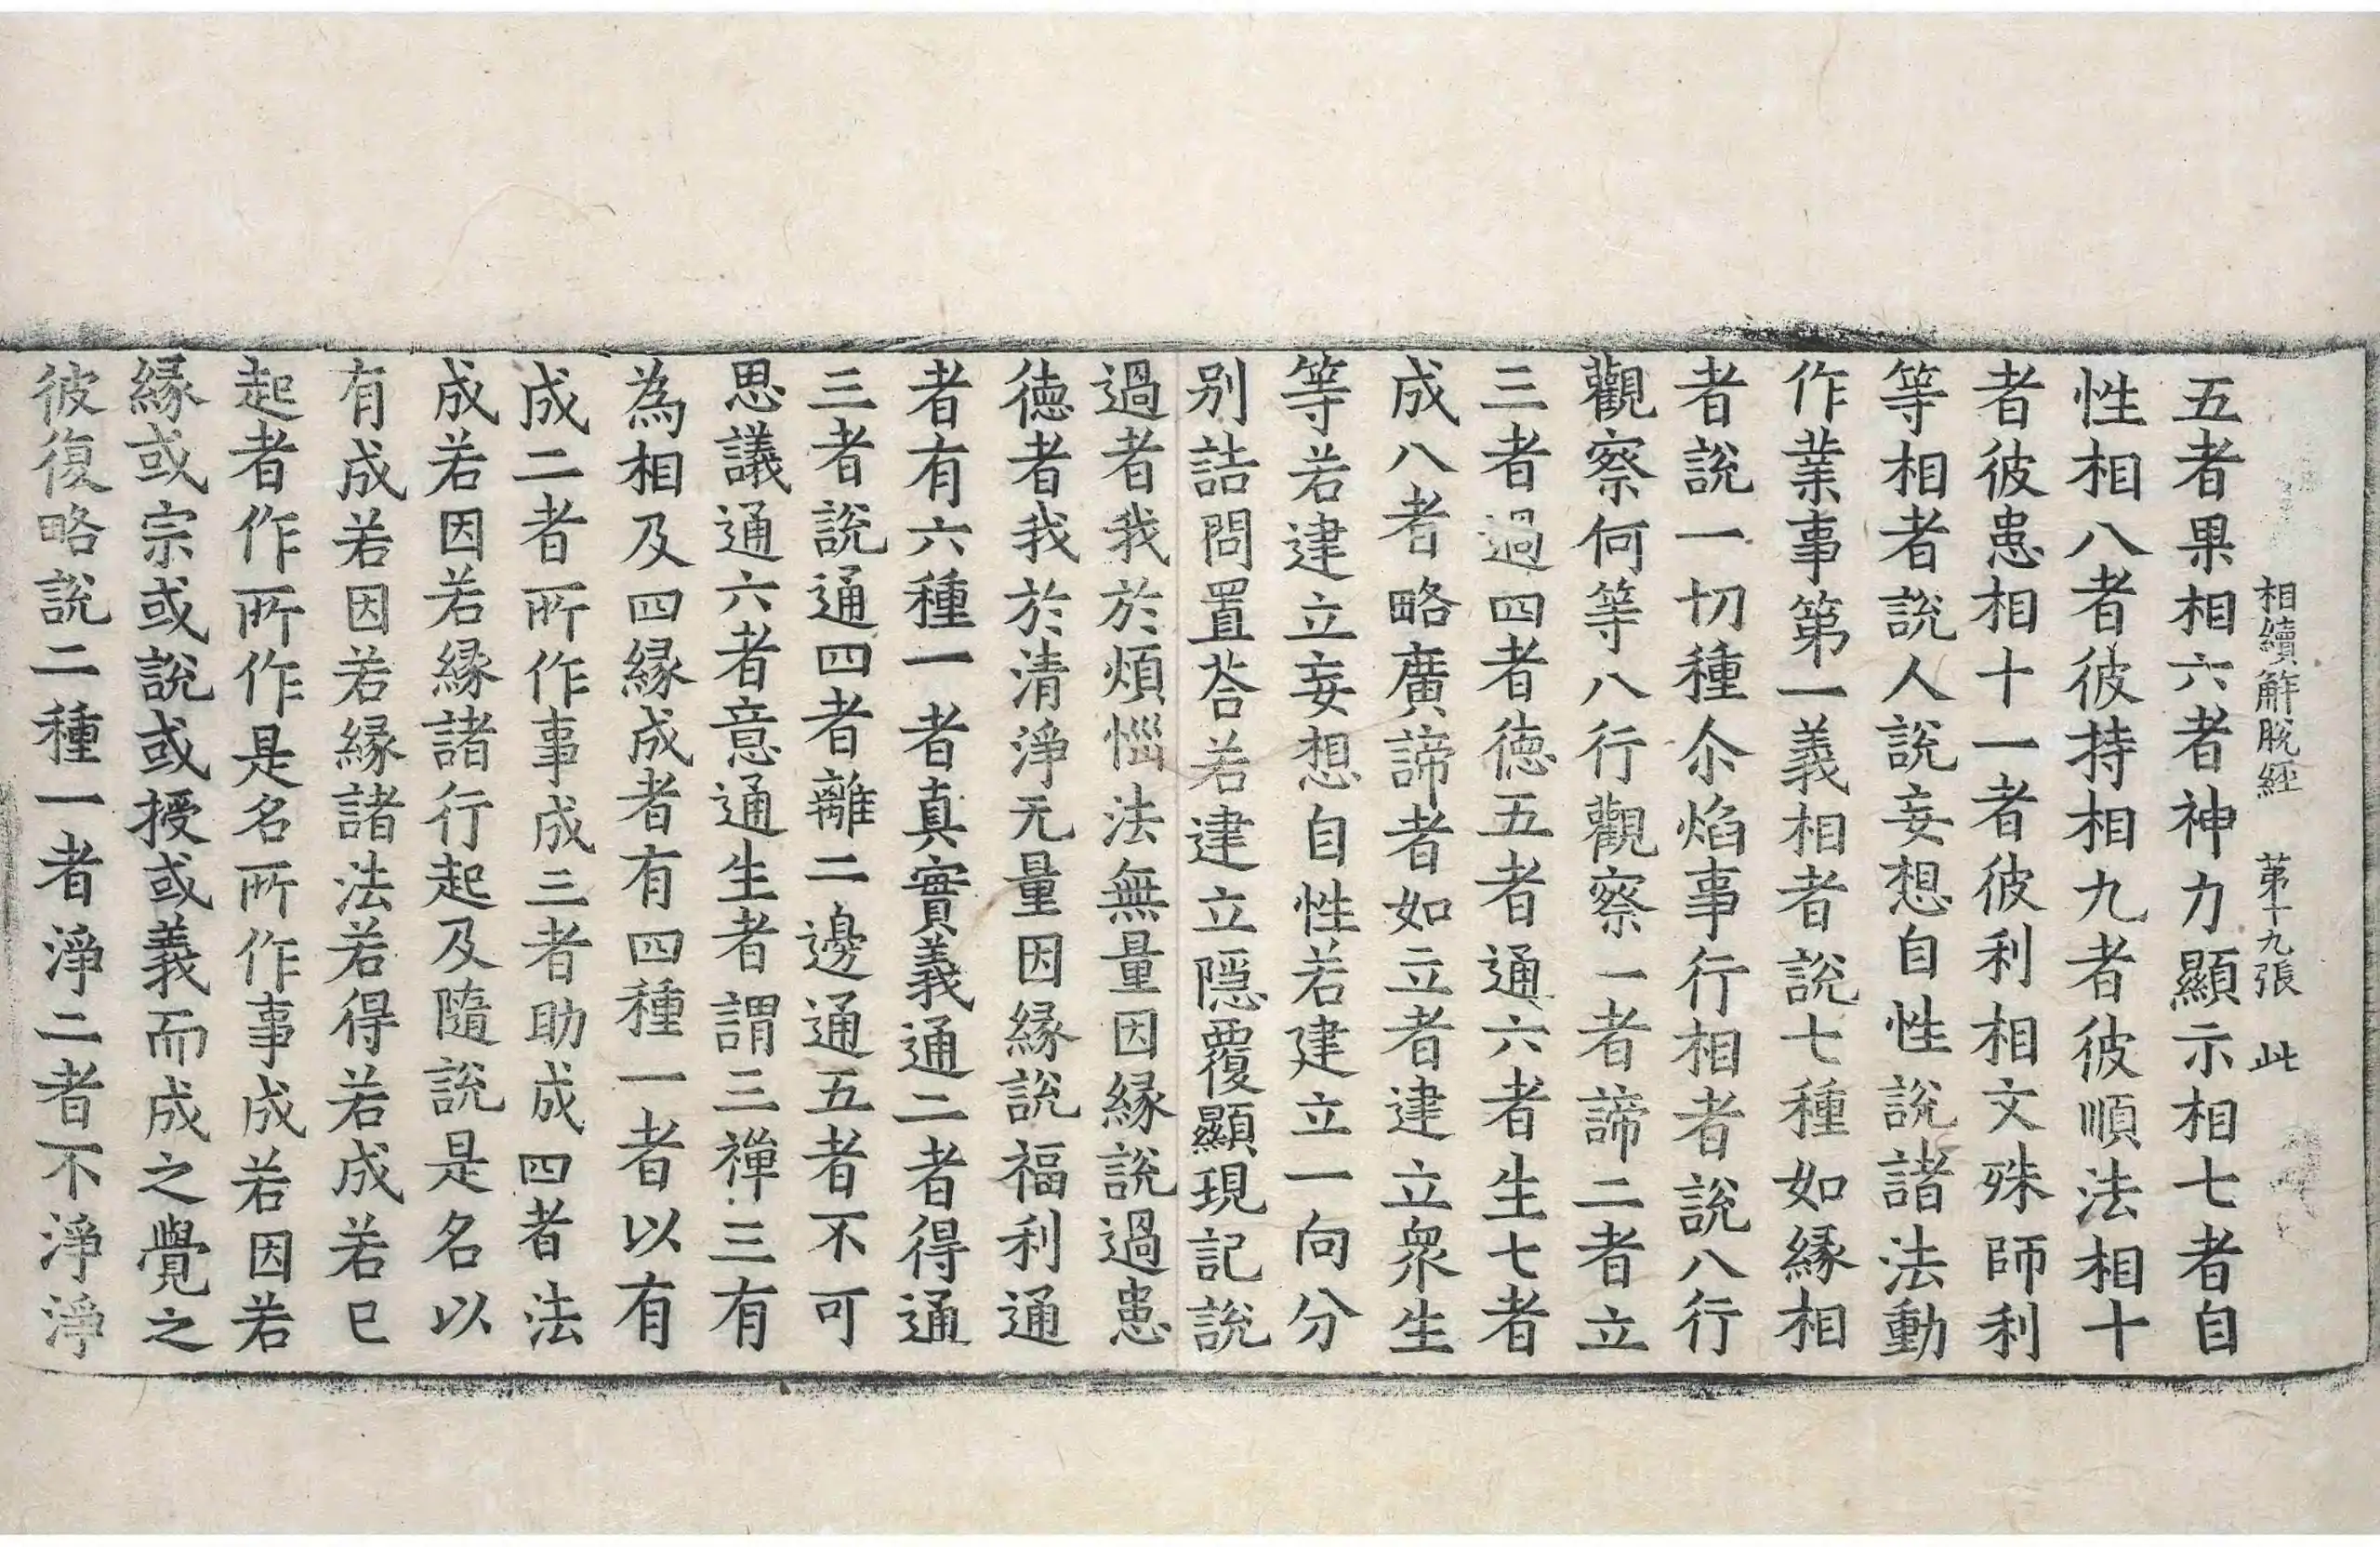 相續解脫經 第十九張 此
五者果相六者神力顯示相七者自
性相八者彼持相九者彼順法相十
者彼患相十一者彼利相文殊師利
等相者說人說妄想自性說諸法動
作業事第一義相者說七種如緣相
者說一切種尒焰事行相者說八行
觀察何等八行觀察一者諦二者立
三者過四者德五者通六者生七者
成八者略廣諦者如立者建立衆生
等若建立妄想自性若建立一向分
別詰問置荅若建立隱覆顯現記說
過者我於煩惱法無量因緣說過患
德者我於清淨无量因緣說福利通
者有六種一者真實義通二者得通
三者說通四者離二邊通五者不可
思議通六者意通生者謂三禪三有
為相及四緣成者有四種一者以有
成二者所作事成三者助成四者法
成若因若緣諸行起及隨說是名以
有成若因若緣諸法若得若成若已
起者作所作是名所作事成若因若
緣或宗或說或授或義而成之覺之
彼復略說二種一者淨二者不淨淨